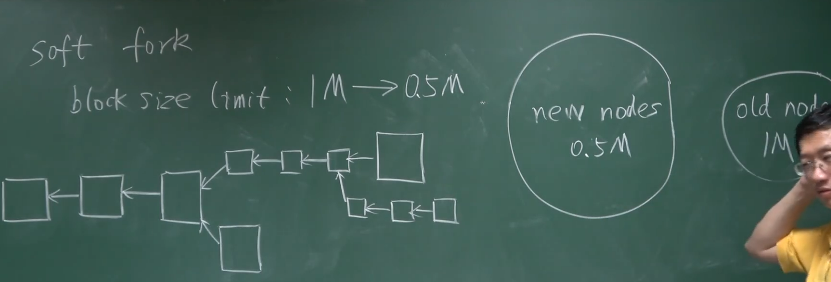 soft fork
block size limit : 1M → 0.5M
new nodes
0.5M
old
1M